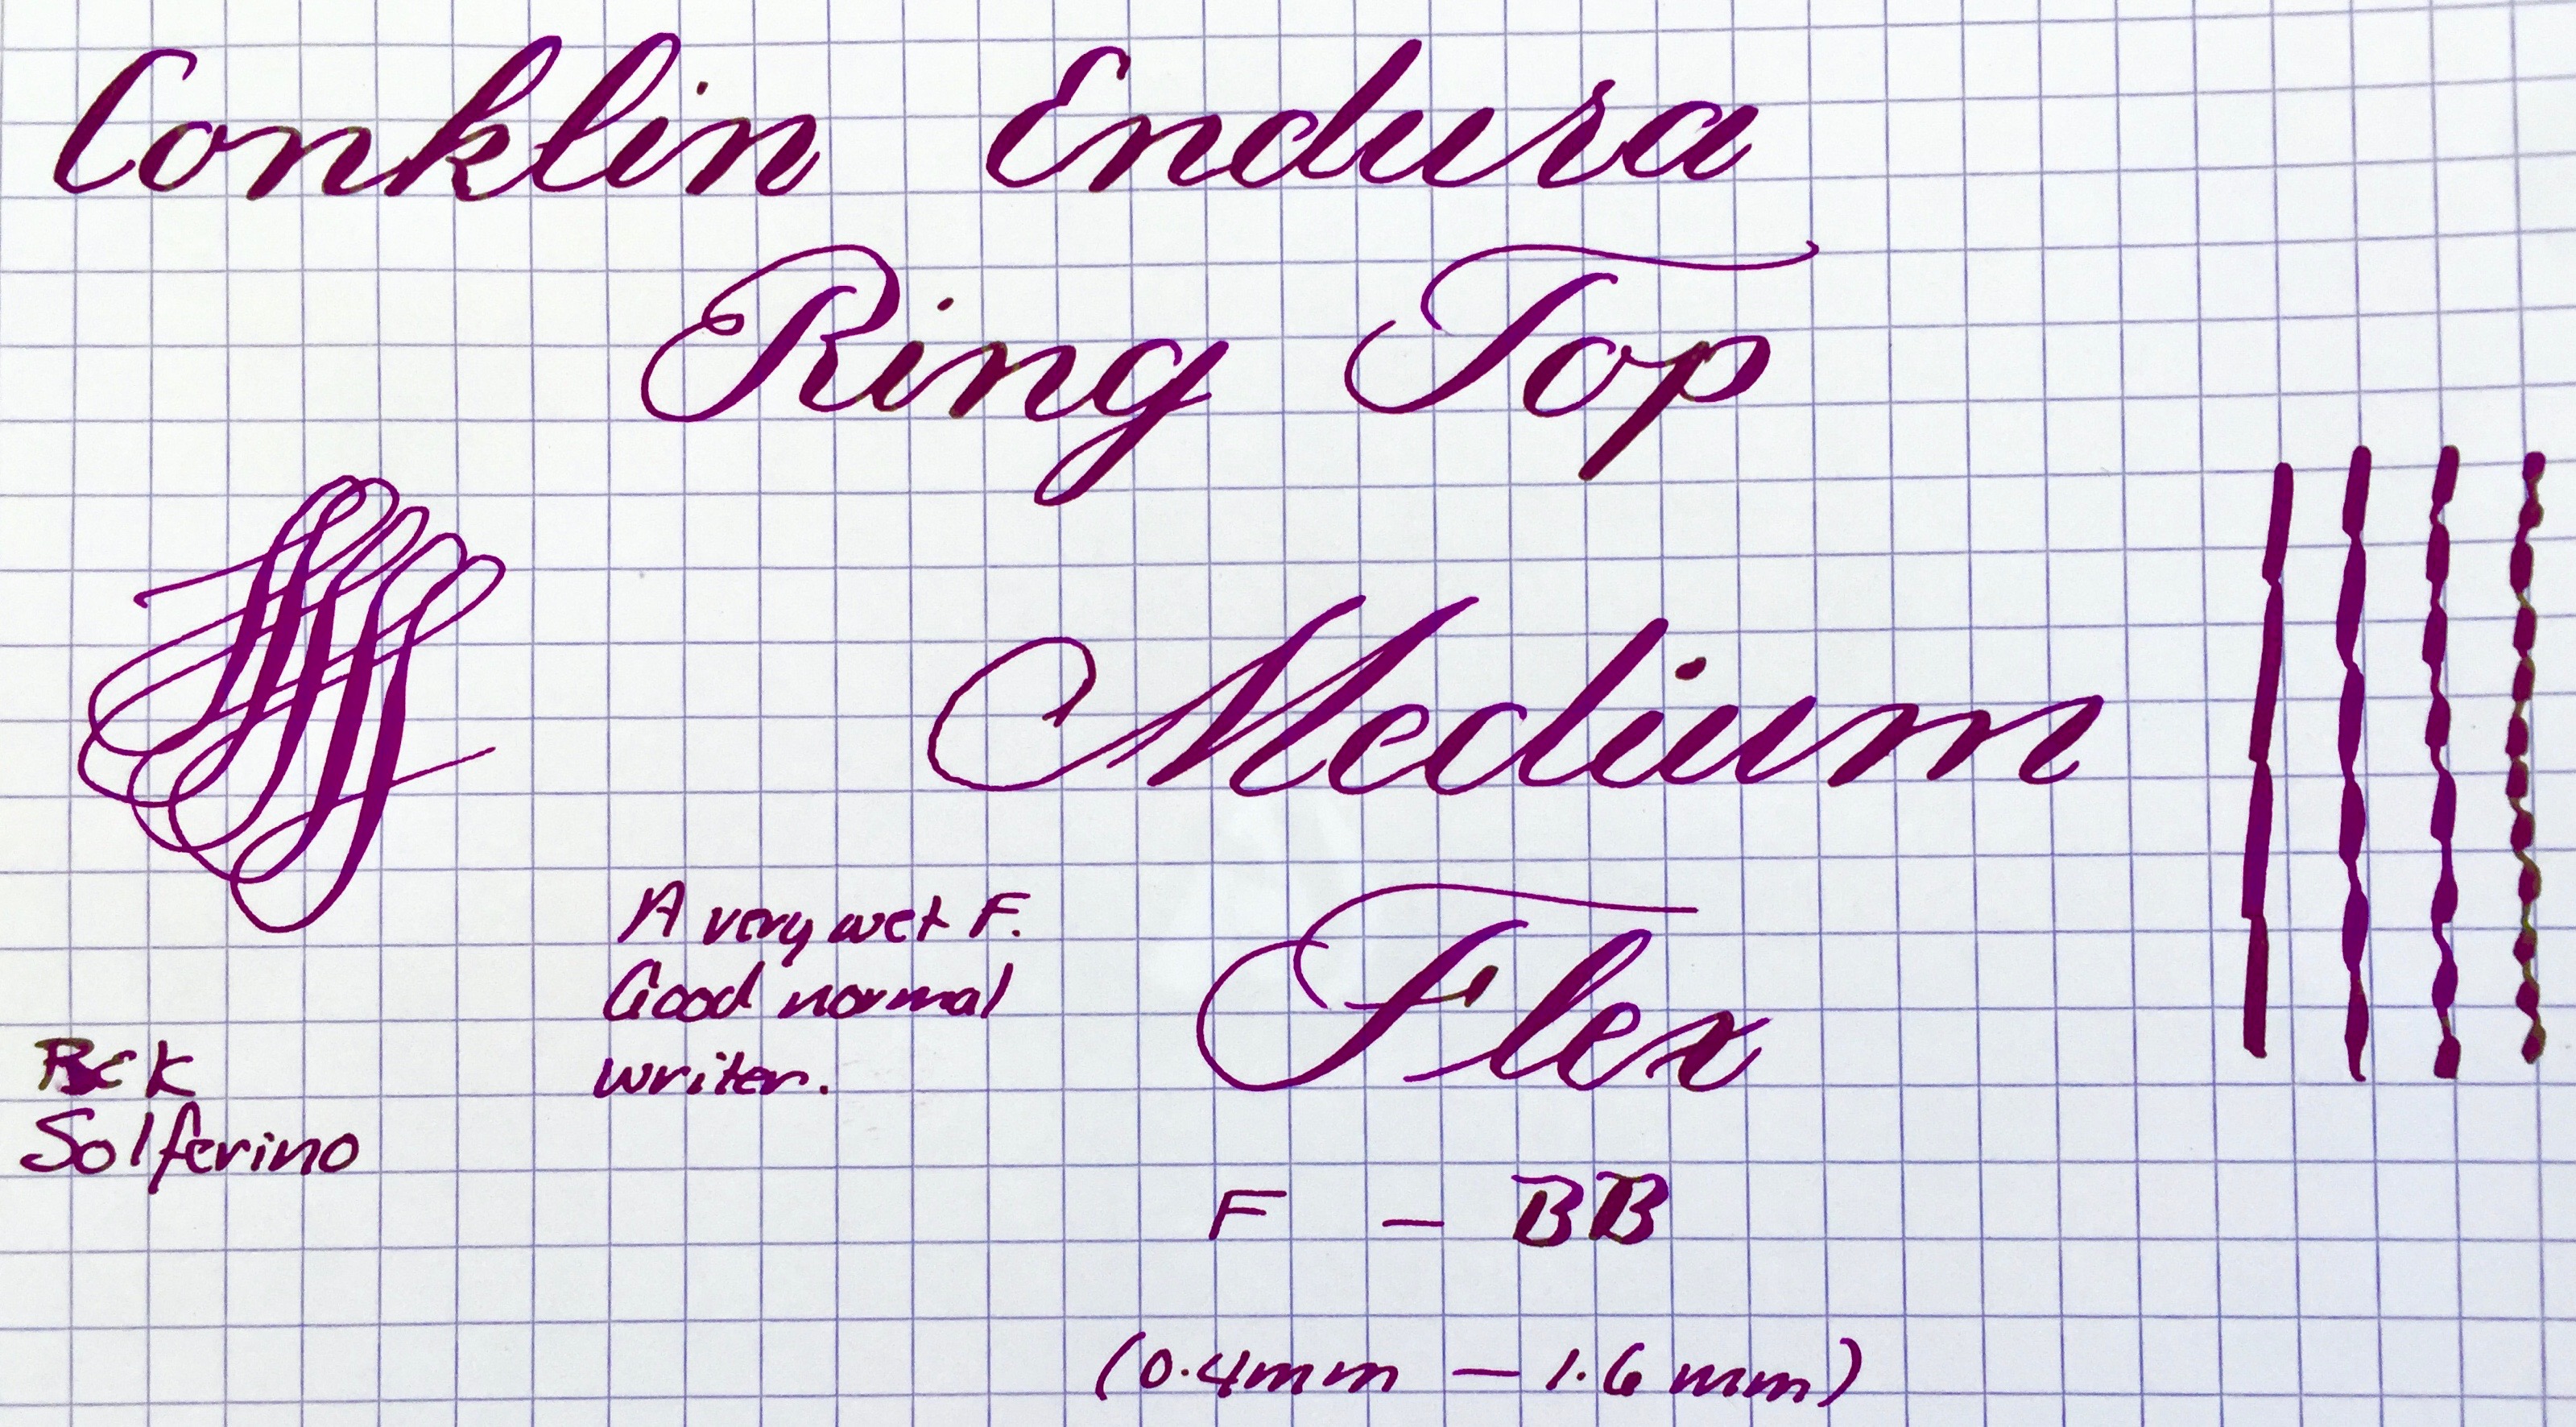 Conklin Endura
Ring Top
Medium
A very wet F.
Good normal
writer.
Flex
Solferino
F - BB
(0.4mm - 1.6mm)